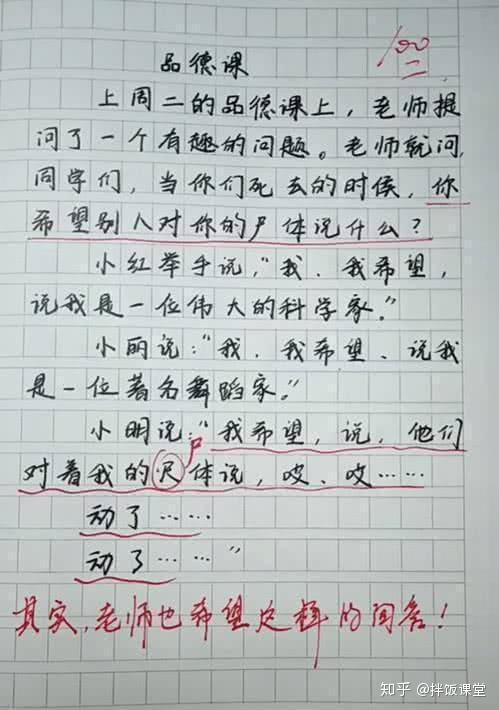 100
品德课
上周二的品德课上，老师提
问了一个有趣的问题。老师就问，
同学们，当你们死去的时候，你
希望别人对你的尸体说什么？
小红举手说，"我、我希望，
说我是一位伟大的科学家。"
小丽说："我、我希望、说我
是一位著名舞蹈家。"
小明说："我希望，说，他们
尸
对着我的尺体说，哎、哎……
动了……
动了……"
其实，老师也希望这样的回答！
知乎 @拌饭课堂